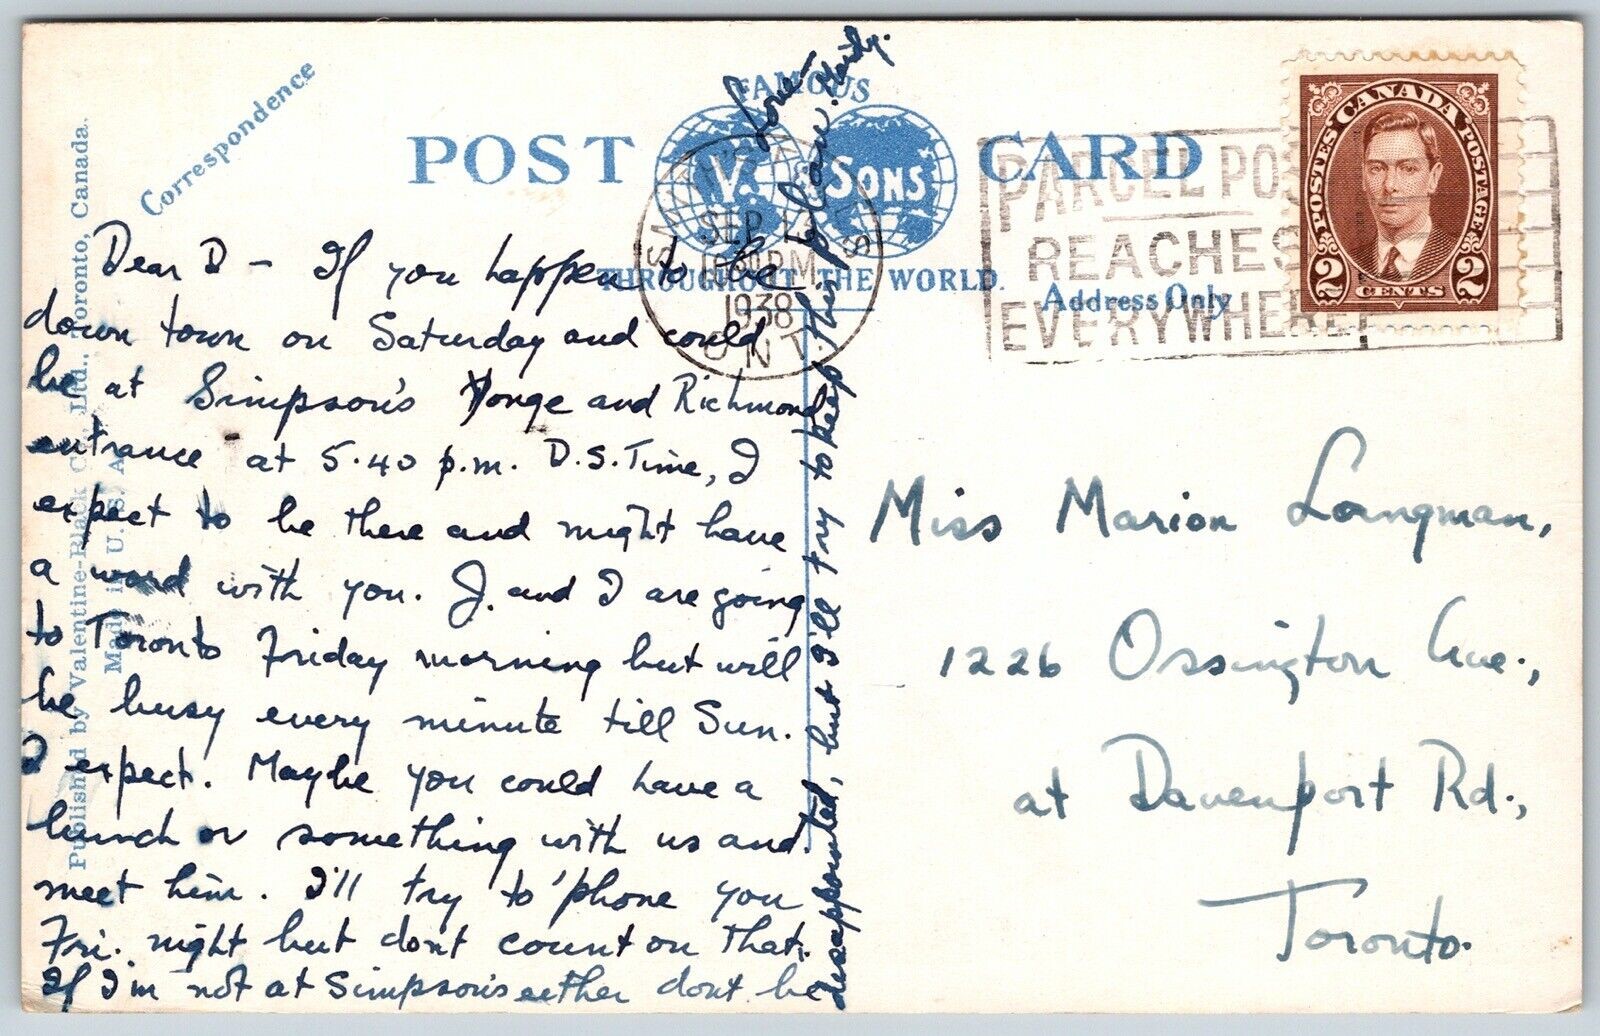 Correspondence
FAMOUS
POST CARD
V. & SONS
THROUGHOUT THE WORLD.
Address Only
Published by Valentine-Black Co., Ltd., Toronto, Canada.
Made in U. S. A.
SEP 1
PM
1938
ONT.
PARCEL POST
REACHES
EVERYWHERE
CANADA
POSTES POSTAGE
2 CENTS 2
Dear D - If you happen to be
down town on Saturday and could
be at Simpson's Yonge and Richmond
entrance at 5.40 p.m. D.S. Time, I
expect to be there and might have
a word with you. J. and I are going
to Toronto Friday morning but will
be busy every minute till Sun.
I expect. Maybe you could have a
lunch or something with us and
meet him. I'll try to 'phone you
Fri. night but don't count on that.
If I'm not at Simpson's either don't be
disappointed, but I'll try to keep this plan.
Love -
Miss Marion Langman,
1226 Ossington Ave.,
at Davenport Rd.,
Toronto.